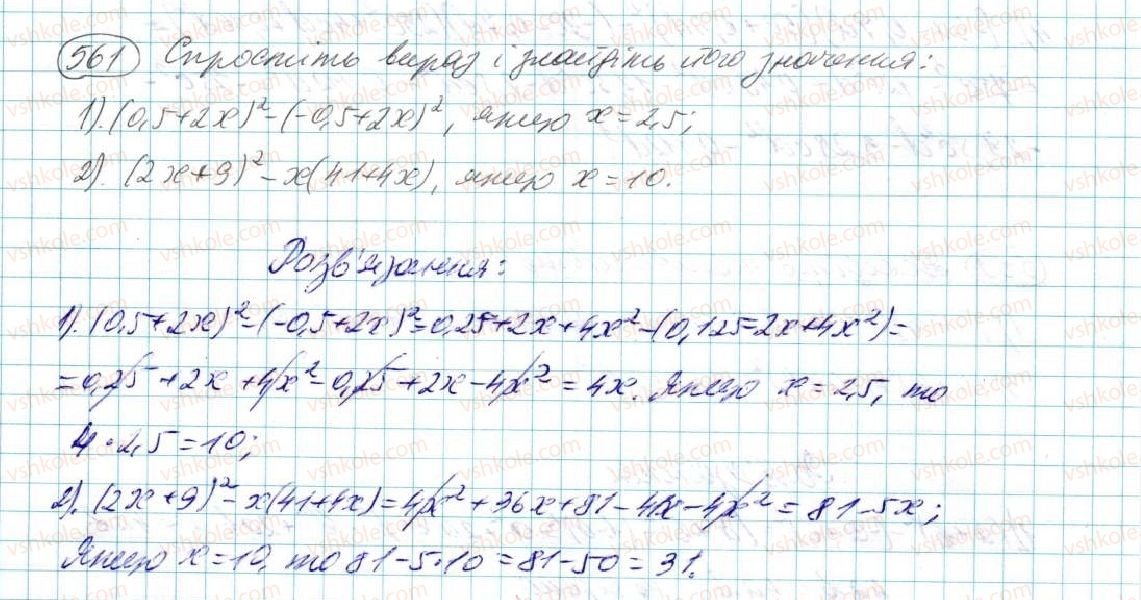 561 Спростіть вираз і знайдіть його значення:
1). (0,5+2x)²-(-0,5+2x)², якщо x=2,5;
2). (2x+9)²-x(41+4x), якщо x=10.
Розв'язання:
1). (0,5+2x)²-(-0,5+2x)²=0,25+2x+4x²-(0,125-2x+4x²)=
=0,25+2x+4x²-0,25+2x-4x²=4x. Якщо x=2,5, то
4·2,5=10;
2). (2x+9)²-x(41+4x)=4x²+36x+81-41x-4x²=81-5x;
Якщо x=10, то 81-5·10=81-50=31.